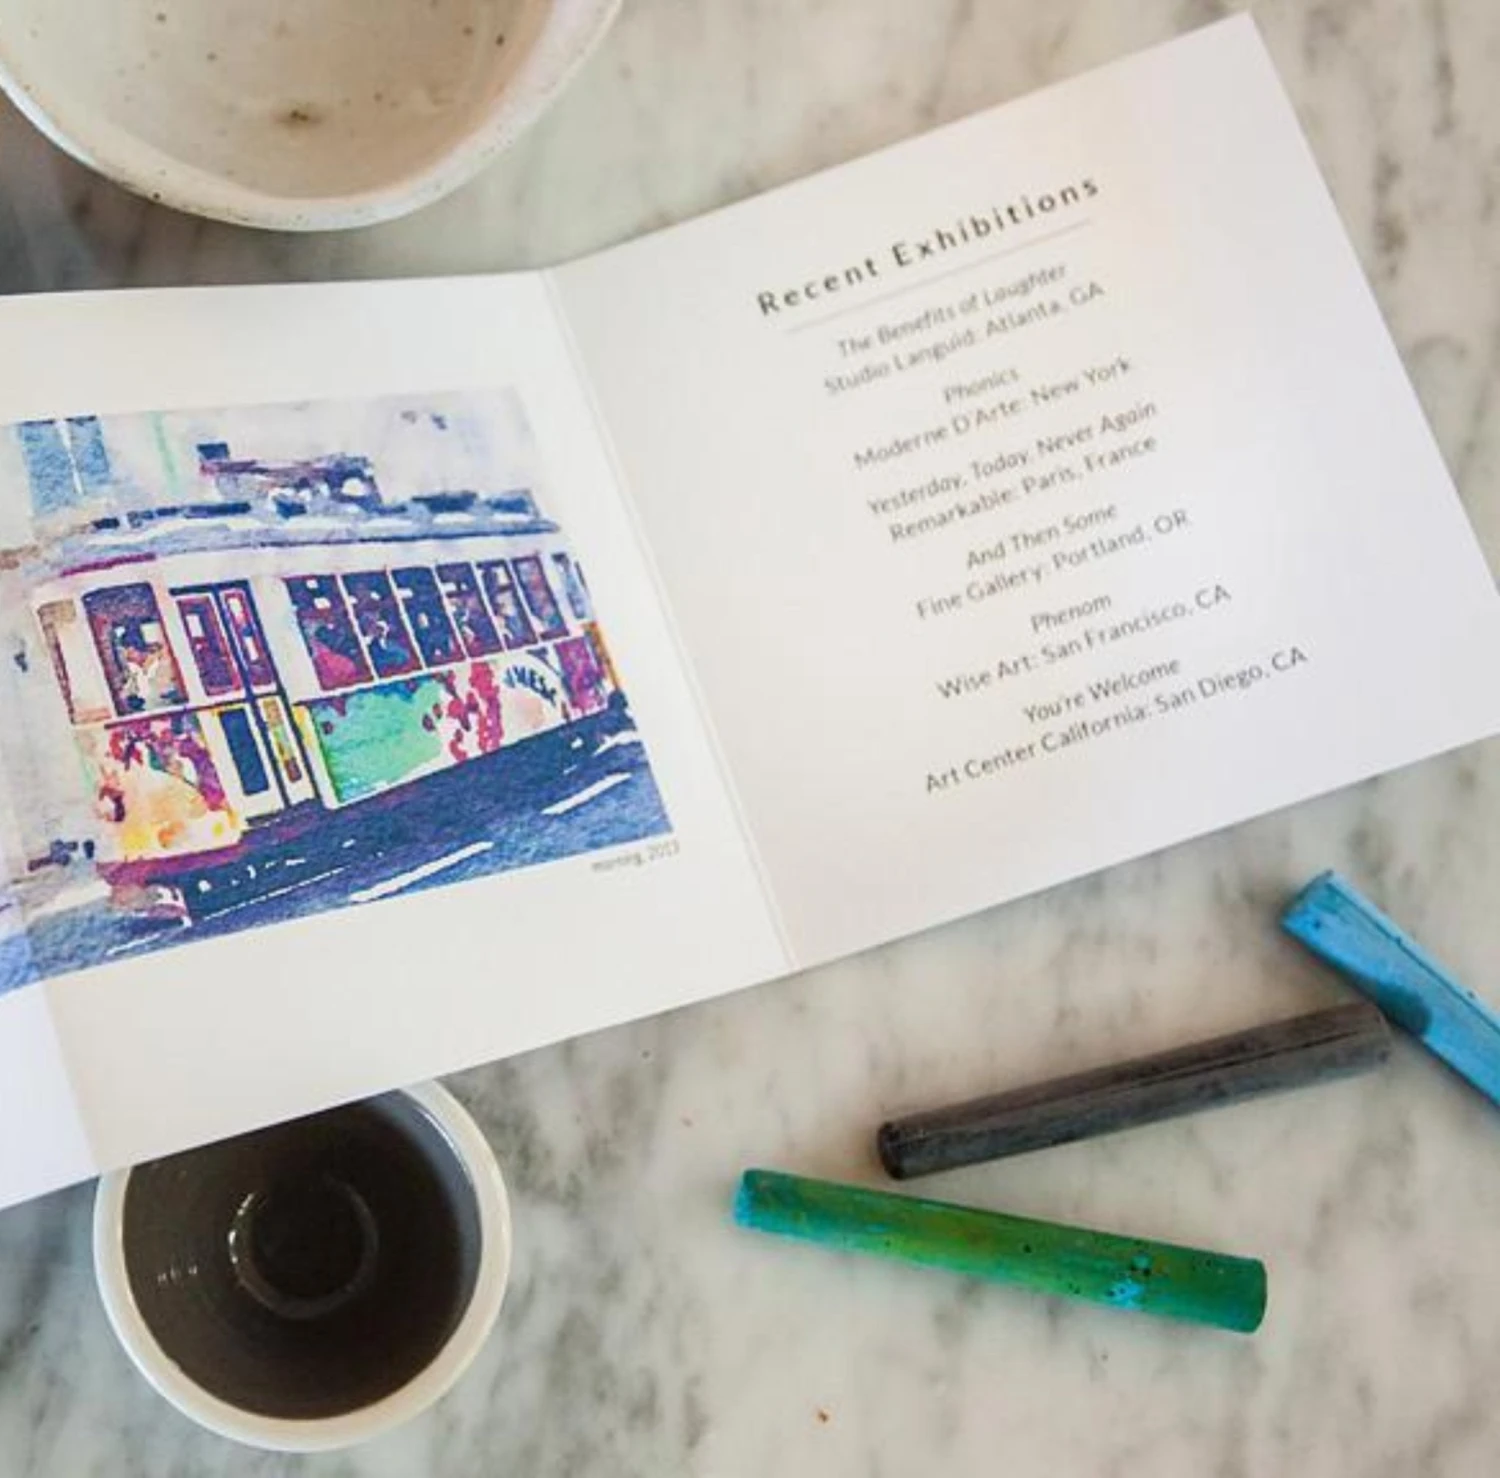 Recent Exhibitions
The Benefits of Laughter
Studio Languid: Atlanta, GA
Phonics
Moderne D'Arte: New York
Yesterday, Today, Never Again
Remarkable: Paris, France
And Then Some
Fine Gallery: Portland, OR
Phenom
Wise Art: San Francisco, CA
You're Welcome
Art Center California: San Diego, CA
2013